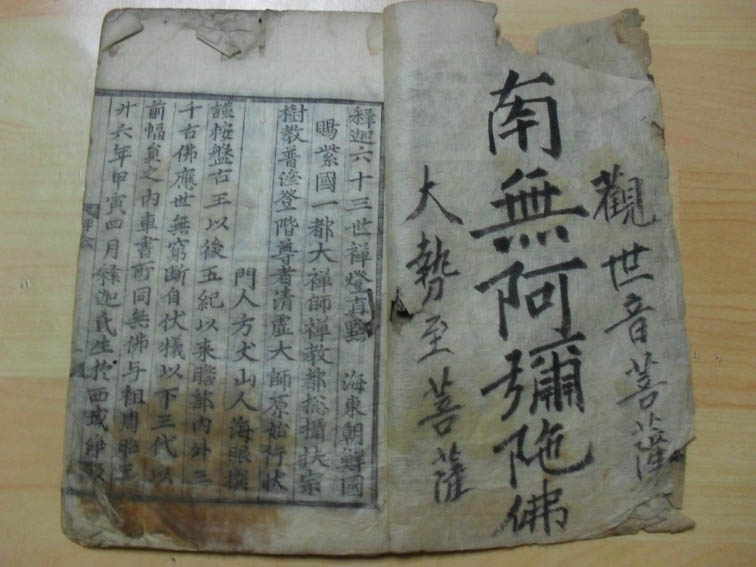 觀世音菩薩
南無阿彌陀佛
大勢至菩薩
釋迦六十三世禪燈直點 海東朝鮮國
賜紫國一都大禪師禪教都捴攝扶宗
樹教普濟登階尊者清虛大師原始行狀
門人方丈山人海眼撰
謹按盤古王以後五紀以來瞻部內外三
千古佛應世無窮斷自伏犧以下三代以
前幅員之內車書所同無佛與祖周昭王
廿六年甲寅四月釋迦氏生於西域